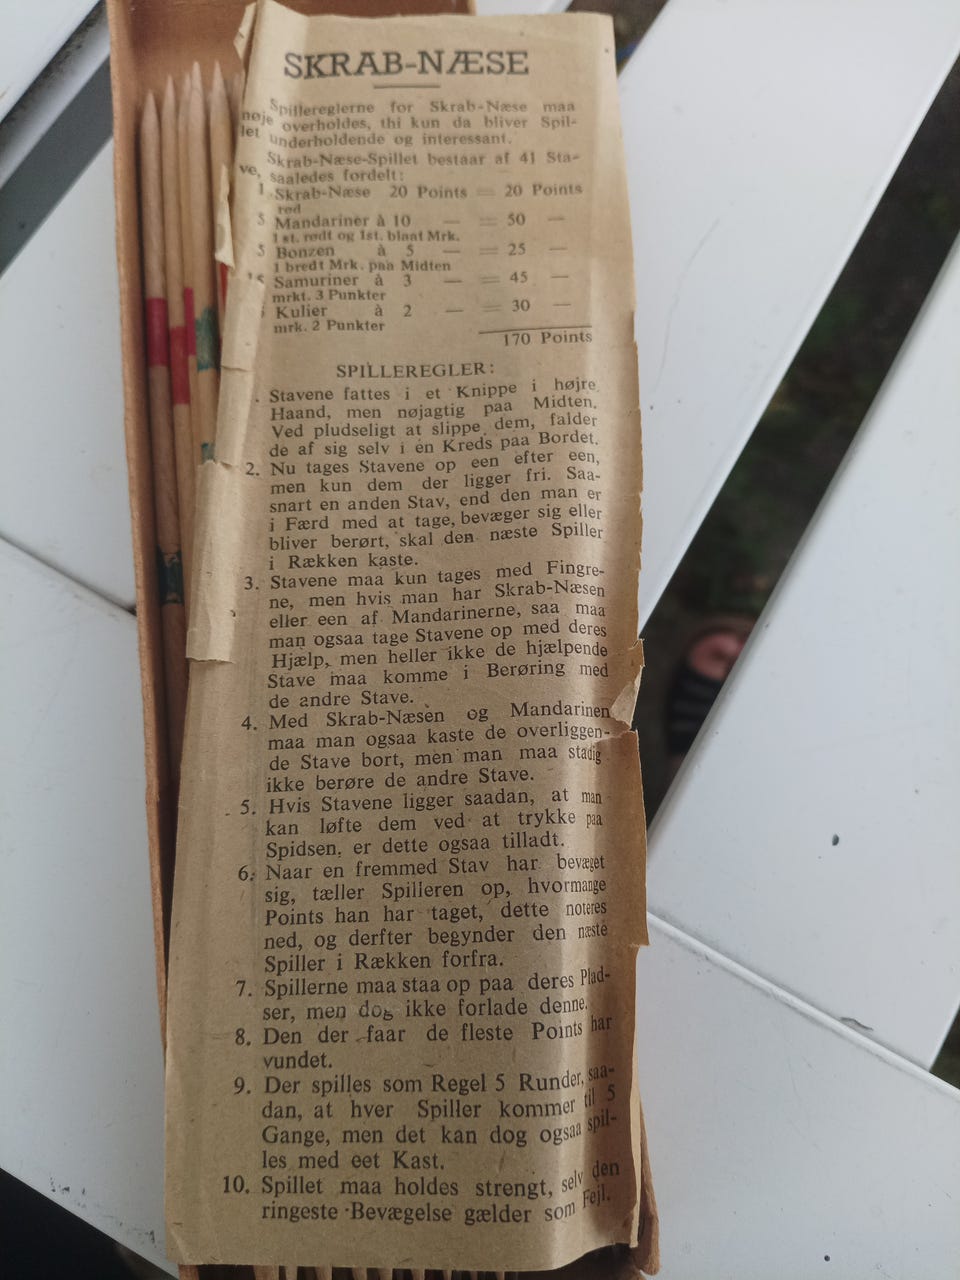 SKRAB-NÆSE
Spillereglerne for Skrab-Næse maa
nøje overholdes, thi kun da bliver Spil-
let underholdende og interessant.
Skrab-Næse-Spillet bestaar af 41 Sta-
ve, saaledes fordelt:
1 Skrab-Næse 20 Points = 20 Points
rød
5 Mandariner à 10 — = 50 —
1 st. rødt og 1st. blaat Mrk.
5 Bonzen à 5 — = 25 —
1 bredt Mrk. paa Midten
15 Samuriner à 3 — = 45 —
mrkt. 3 Punkter
Kulier à 2 — = 30 —
mrk. 2 Punkter
170 Points
SPILLEREGLER:
. Stavene fattes i et Knippe i højre
Haand, men nøjagtig paa Midten.
Ved pludseligt at slippe dem, falder
de af sig selv i en Kreds paa Bordet.
2. Nu tages Stavene op een efter een,
men kun dem der ligger fri. Saa-
snart en anden Stav, end den man er
i Færd med at tage, bevæger sig eller
bliver berørt, skal den næste Spiller
i Rækken kaste.
3. Stavene maa kun tages med Fingre-
ne, men hvis man har Skrab-Næsen
eller een af Mandarinerne, saa maa
man ogsaa tage Stavene op med deres
Hjælp, men heller ikke de hjælpende
Stave maa komme i Berøring med
de andre Stave.
4. Med Skrab-Næsen og Mandarinen
maa man ogsaa kaste de overliggen-
de Stave bort, men man maa stadig
ikke berøre de andre Stave.
5. Hvis Stavene ligger saadan, at man
kan løfte dem ved at trykke paa
Spidsen, er dette ogsaa tilladt.
6. Naar en fremmed Stav har bevæget
sig, tæller Spilleren op, hvormange
Points han har taget, dette noteres
ned, og derfter begynder den næste
Spiller i Rækken forfra.
7. Spillerne maa staa op paa deres Plad-
ser, men dog ikke forlade denne.
8. Den der faar de fleste Points har
vundet.
9. Der spilles som Regel 5 Runder, saa-
dan, at hver Spiller kommer til 5
Gange, men det kan dog ogsaa spil-
les med eet Kast.
10. Spillet maa holdes strengt, selv den
ringeste Bevægelse gælder som Fejl.